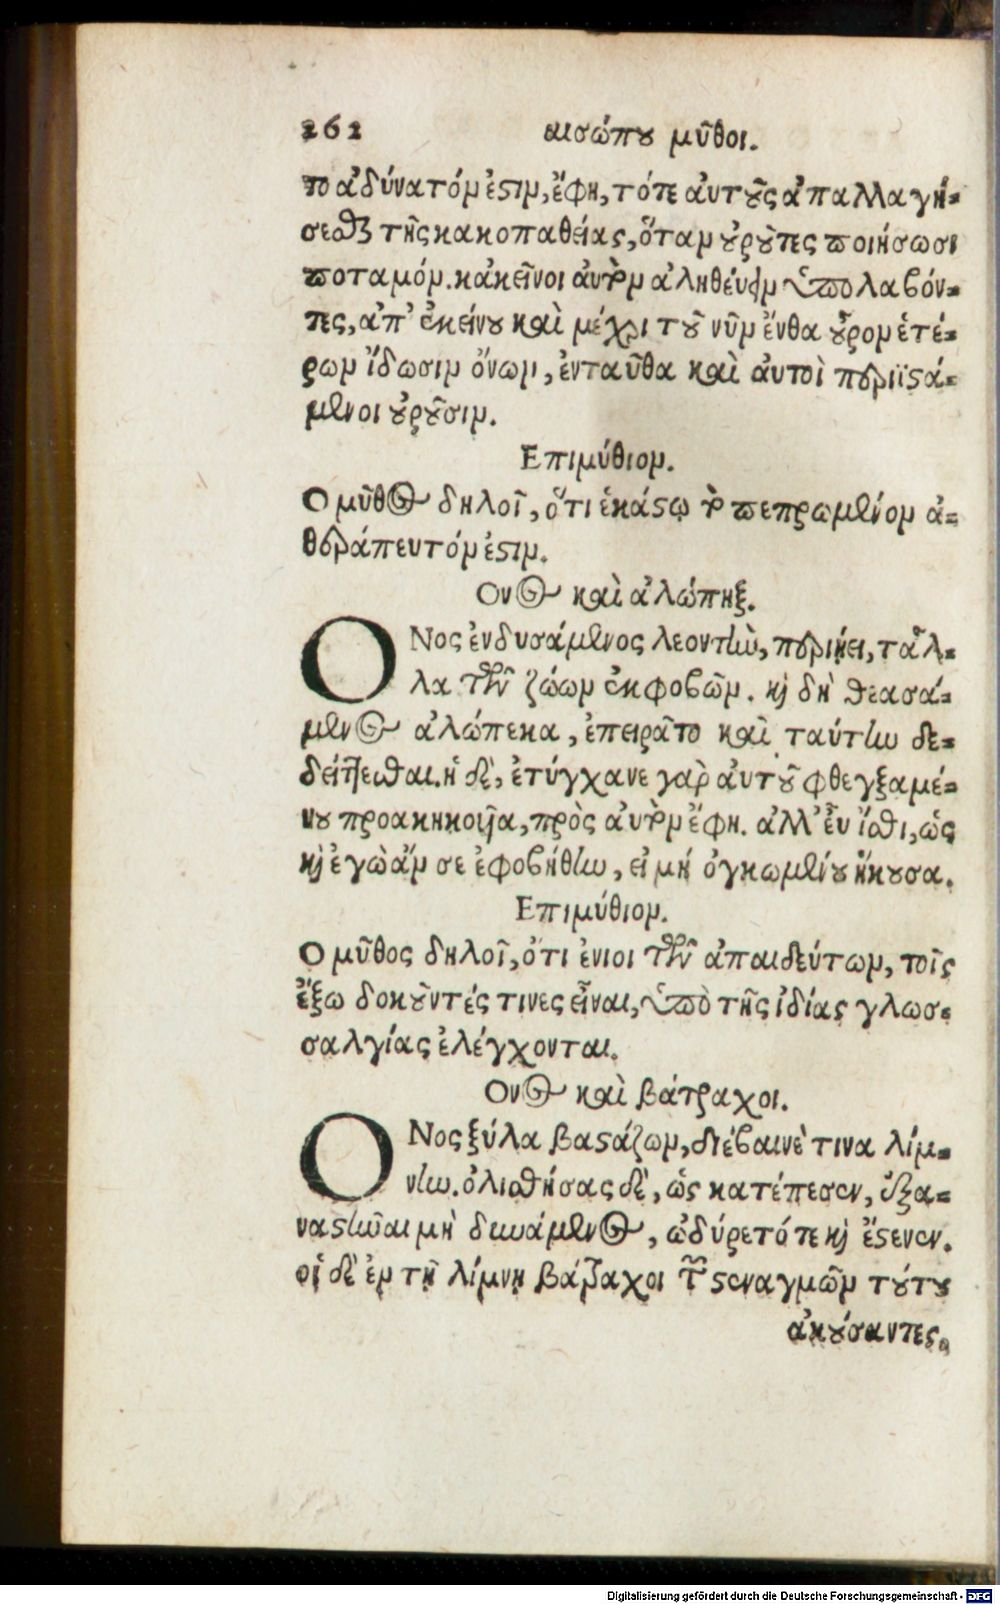 262 αισώπου μῦθοι.
το ἀδύνατόν ἐστιν, ἔφη, τότε ἀυτοῦς ἀπαλλαγή-
σεσθαι τῆς κακοπαθείας, ὅταν οὐροῦτες ποιήσωσι
ποταμόν. κἀκεῖνοι ἀυτὸν ἀληθέυειν ὑπολαβόν-
τες, ἀπ' ἐκείνου καὶ μέχρι τοῦ νῦν ἔνθα οὖρον ἑτέ-
ρων ἴδωσιν ὄνων, ἐνταῦθα καὶ ἀυτοὶ περιϊστά-
μενοι οὐροῦσιν.
Επιμύθιον.
Ο μῦθος δηλοῖ, ὅτι ἑκάστῳ τὸ πεπρωμένον ἀ-
θεράπευτόν ἐστιν.
Ονος καὶ ἀλώπηξ.
ΟΝος ἐνδυσάμενος λεοντῆν, περιῄει, τἆλ-
λα τῶν ζώων ἐκφοβῶν. καὶ δὴ θεασά-
μενος ἀλώπεκα, ἐπειρᾶτο καὶ ταύτην δε-
δείττεσθαι. ἡ δὲ, ἐτύγχανε γὰρ ἀυτοῦ φθεγξαμέ-
νου προακηκουῖα, πρὸς ἀυτὸν ἔφη. ἀλλ' εὖ ἴσθι, ὡς
καὶ ἐγὼ ἄν σε ἐφοβήθην, εἰ μή ὀγκωμένου ἤκουσα.
Επιμύθιον.
Ο μῦθος δηλοῖ, ὅτι ἐνιοι τῶν ἀπαιδεύτων, τοῖς
ἔξω δοκοῦντές τινες εἶναι, ὑπὸ τῆς ἰδίας γλωσ-
σαλγίας ἐλέγχονται.
Ονος καὶ βάτραχοι.
ΟΝος ξύλα βαστάζων, διέβαινέ τινα λίμ-
νην. ὀλισθήσας δὲ, ὡς κατέπεσεν, ἐξα-
ναστῆναι μὴ δυνάμενος, ὠδύρετό τε καὶ ἔστενεν.
οἱ δὲ ἐν τῇ λίμνῃ βάτραχοι τῶν στεναγμῶν τούτου
ἀκούσαντες,
Digitalisierung gefördert durch die Deutsche Forschungsgemeinschaft - DFG